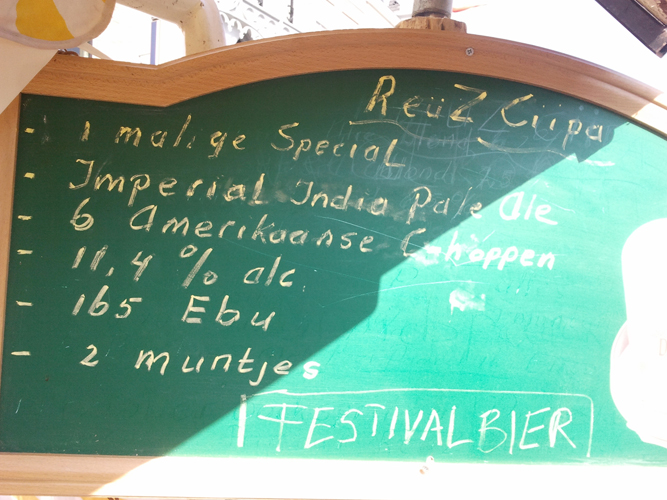 ReüZ Ciipa
- 1 malige Special
- Imperial India Pale Ale
- 6 Amerikaanse C-hoppen
- 11,4 % alc.
- 165 Ebu
- 2 muntjes
FESTIVALBIER